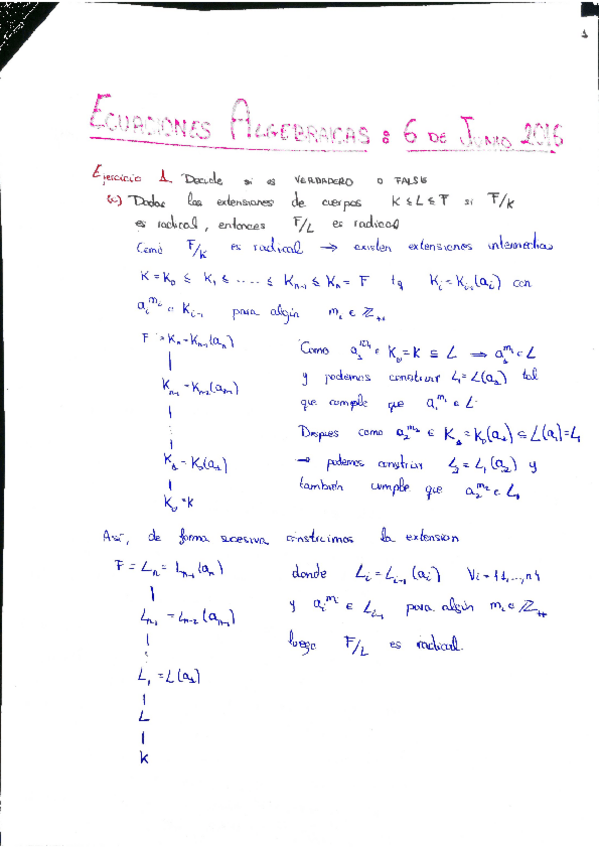 1
ECUACIONES ALGEBRAICAS : 6 DE JUNIO 2016
Ejercicio 1. Decide si es VERDADERO O FALSO
(a) Dadas las extensiones de cuerpos K ≤ L ≤ F si F/K
es radical, entonces F/L es radical
Como F/K es radical → existen extensiones intermedias
K = K₀ ≤ K₁ ≤ ..... ≤ Kₙ₋₁ ≤ Kₙ = F tq Kᵢ = Kᵢ₋₁(aᵢ) con
aᵢ^mᵢ ∈ Kᵢ₋₁ para algún mᵢ ∈ ℤ₊
F = Kₙ = Kₙ₋₁(aₙ)
Kₙ₋₁ = Kₙ₋₂(aₙ₋₁)
K₁ = K₀(a₁)
K₀ = K
Como a₁^m₁ ∈ K₀ = K ⊆ L → a₁^m₁ ∈ L
y podemos construir L₁ = L(a₁) tal
que cumple que a₁^m₁ ∈ L.
Despues como a₂^m₂ ∈ K₁ = K₀(a₁) ⊆ L(a₁) = L₁
→ podemos construir L₂ = L₁(a₂) y
también cumple que a₂^m₂ ∈ L₁
Así, de forma sucesiva construimos la extension
F = Lₙ = Lₙ₋₁(aₙ)
Lₙ₋₁ = Lₙ₋₂(aₙ₋₁)
L₁ = L(a₁)
L
K
donde Lᵢ = Lᵢ₋₁(aᵢ) ∀i = {1,...,n}
y aᵢ^mᵢ ∈ Lᵢ₋₁ para algún mᵢ ∈ ℤ₊
luego F/L es radical.